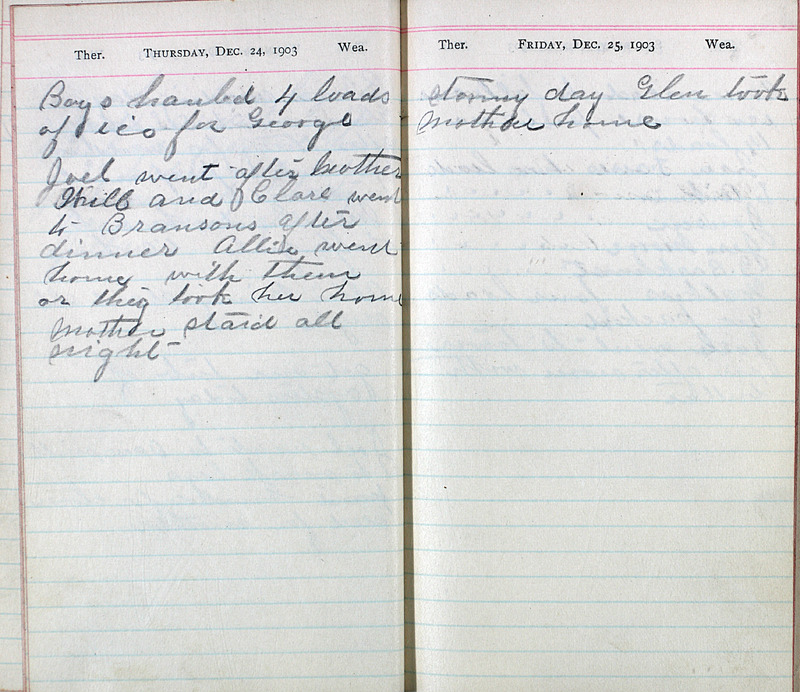 Ther. Thursday, Dec. 24, 1903 Wea.
Boys hauled 4 loads
of ice for George
Joel went after Mother
Will and Clare went
to Bransons after
dinner Allie went
home with them
or they took her home
Mother staid all
night
Ther. Friday, Dec. 25, 1903 Wea.
stormy day Glen took
Mother home